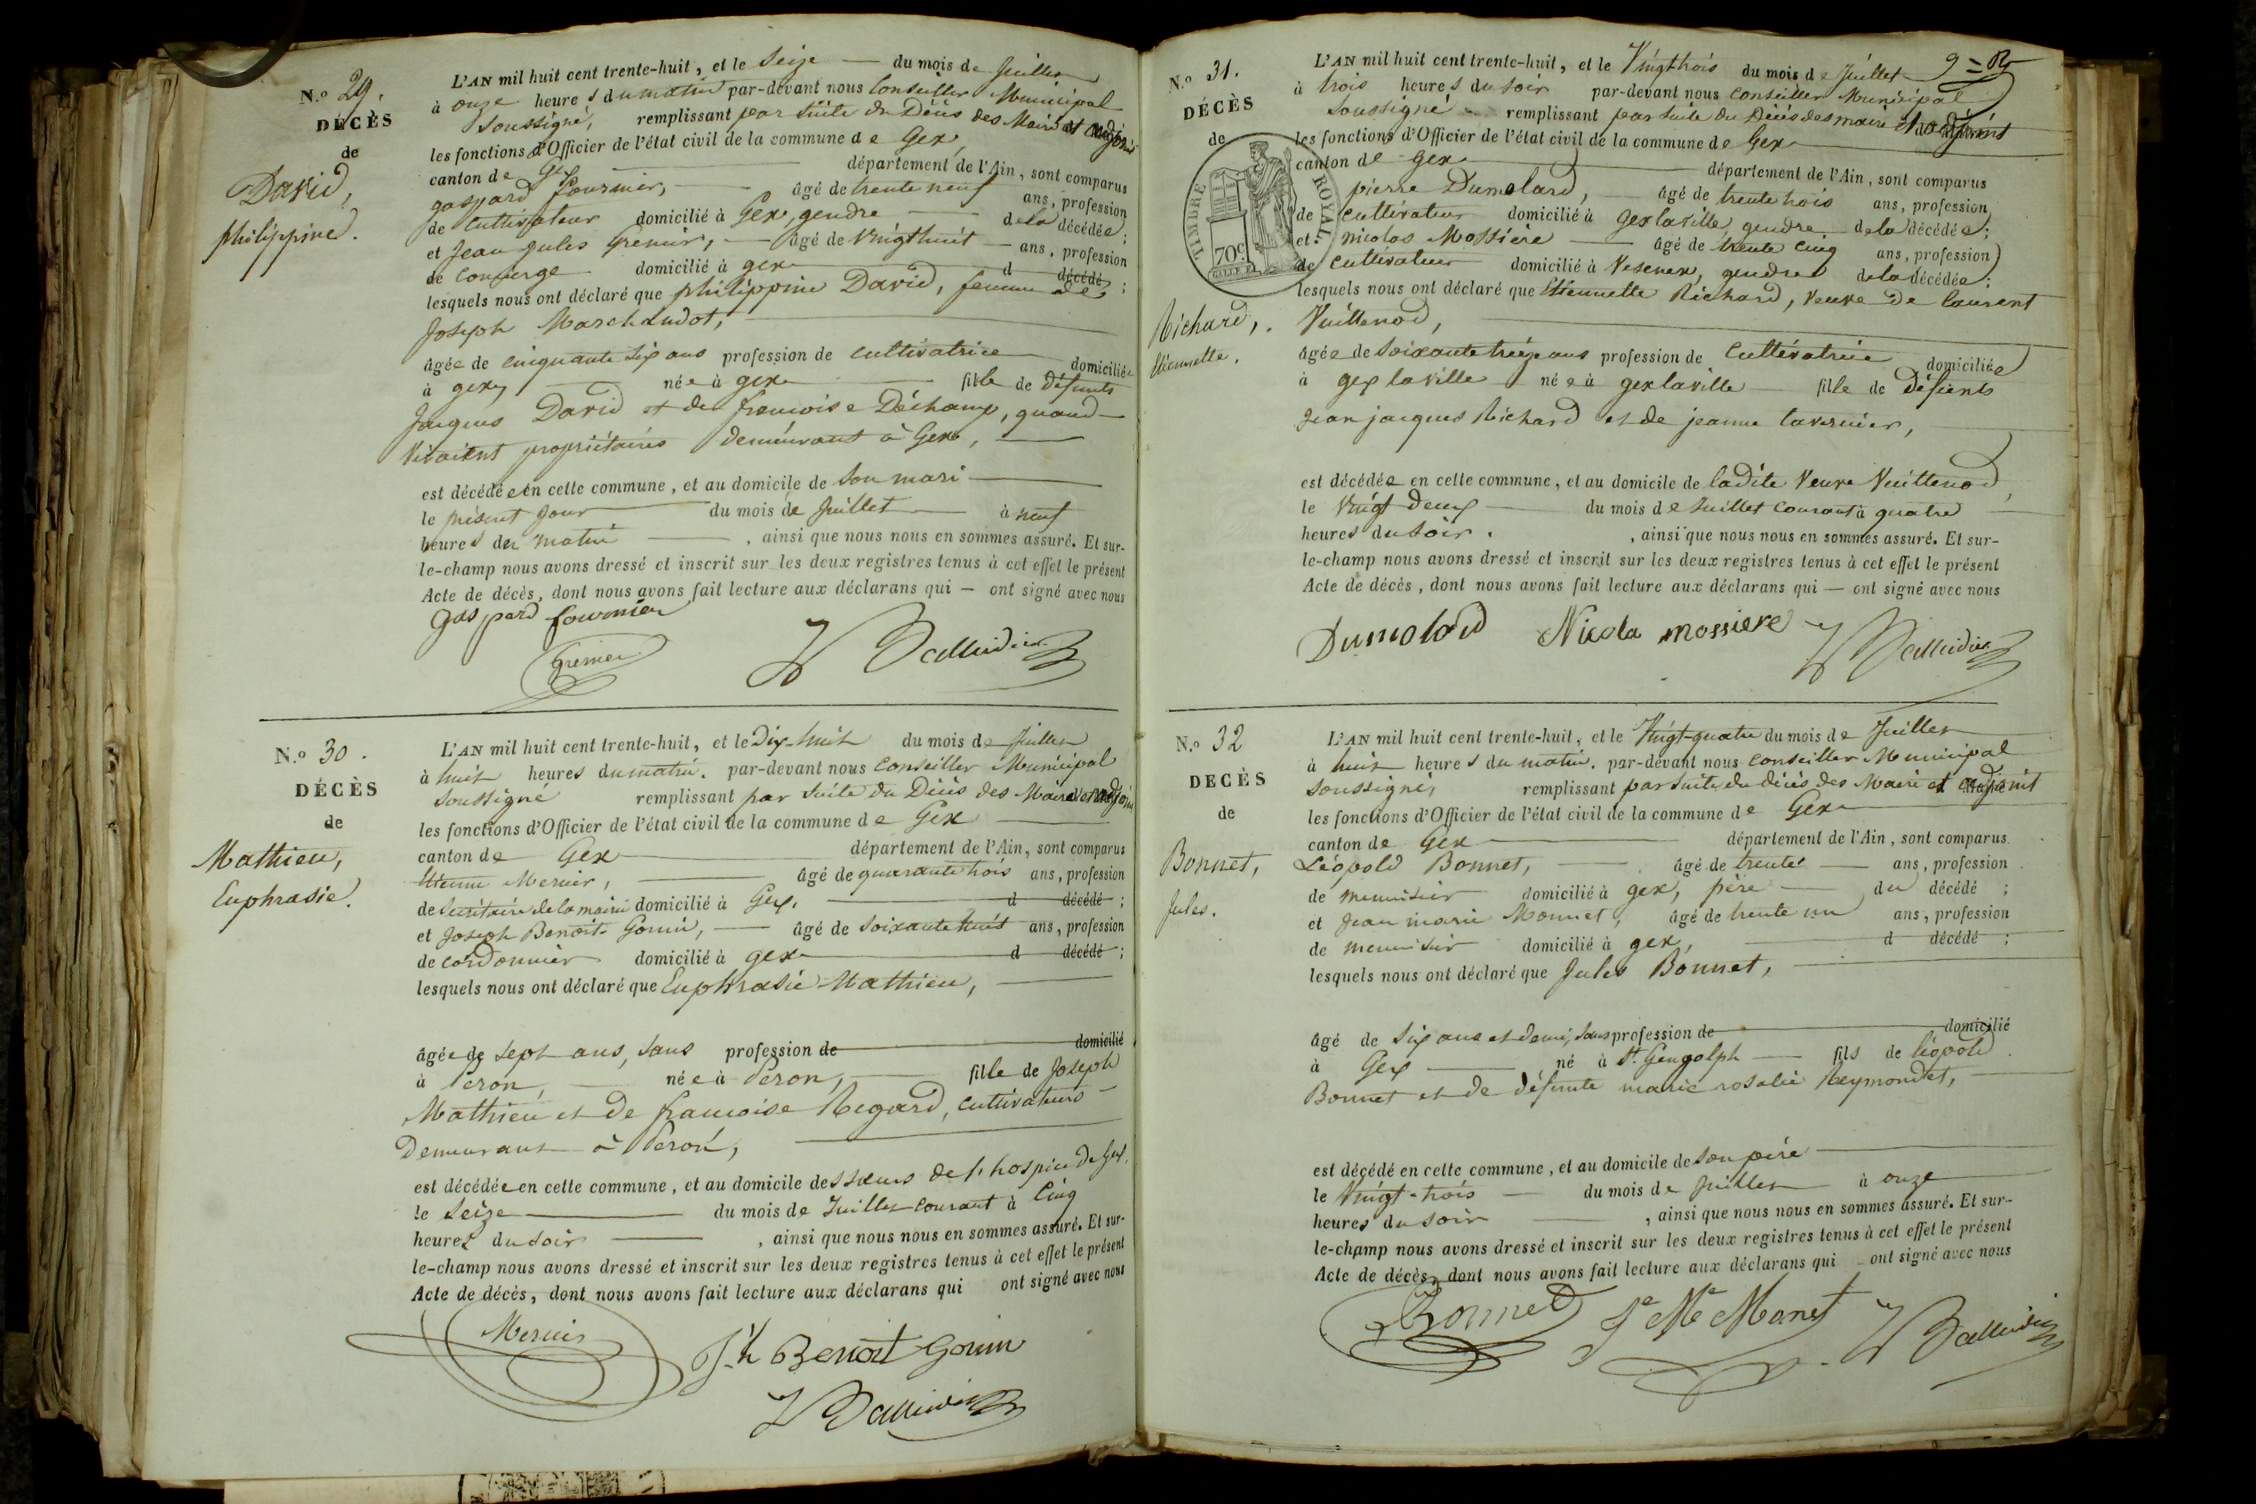 N.o 29.
DÉCÈS
de
David,
philippine.
L'AN mil huit cent trente-huit, et le Seize du mois de Juillet
à onze heures du matin par-devant nous Conseiller Municipal
Soussigné, remplissant par suite du Décès des Maire et adjoint
les fonctions d'Officier de l'état civil de la commune de Gex
canton de Gex département de l'Ain, sont comparus
gaspard fournier, âgé de trente neuf ans, profession
de Cultivateur domicilié à Gex, gendre de la décédée ;
et Jean Jules Grenier, âgé de vingthuit ans, profession
de Concierge domicilié à gex d décédé ;
lesquels nous ont déclaré que philippine David, femme de
Joseph Marchandot,
âgée de cinquante six ans profession de cultivatrice domiciliée
à gex, née à gex fille de défunts
Jacques David et de francoise Déchamp, quand
vivaient propriétaires demeurant à Gex,
est décédée en cette commune, et au domicile de son mari
le présent jour du mois de Juillet à neuf
heures du matin , ainsi que nous nous en sommes assuré. Et sur-
le-champ nous avons dressé et inscrit sur les deux registres tenus à cet effet le présent
Acte de décès, dont nous avons fait lecture aux déclarans qui — ont signé avec nous
gaspard fournier
Grenier
N.o 30.
DÉCÈS
de
Mathieu,
Euphrasie.
L'AN mil huit cent trente-huit, et le Dix-huit du mois de Juillet
à huit heures du matin. par-devant nous Conseiller Municipal
Soussigné remplissant par suite du Décès des Maire et adjoint
les fonctions d'Officier de l'état civil de la commune de Gex
canton de Gex département de l'Ain, sont comparus
Etienne Mercier, âgé de quarante trois ans, profession
de Secrétaire de la mairie domicilié à Gex, d décédé ;
et Joseph Benoit Gonin, âgé de soixante huit ans, profession
de cordonnier domicilié à gex d décédé ;
lesquels nous ont déclaré que Euphrasie Mathieu,
âgée de sept ans, sans profession de domicilié
à Péron, née à Péron, fille de Joseph
Mathieu et de francoise Regard, cultivateurs
Demeurant à Péron,
est décédée en cette commune, et au domicile des sœurs de l'hospice de Gex,
le Seize du mois de Juillet courant à Cinq
heures du soir , ainsi que nous nous en sommes assuré. Et sur-
le-champ nous avons dressé et inscrit sur les deux registres tenus à cet effet le présent
Acte de décès, dont nous avons fait lecture aux déclarans qui ont signé avec nous
Mercier
J.h Benoit Gonin
N.o 31.
DÉCÈS
de
TIMBRE ROYAL
70c.
Richard,
Etiennette.
L'AN mil huit cent trente-huit, et le Vingttrois du mois de Juillet
à trois heures du soir par-devant nous Conseiller Municipal
Soussigné remplissant par suite du Décès des maire et adjoint
les fonctions d'Officier de l'état civil de la commune de Gex
canton de Gex département de l'Ain, sont comparus
pierre Dumolard, âgé de trente trois ans, profession
de cultivateur domicilié à Gex la ville, gendre de la décédée ;
et nicolas Mossiere âgé de trente cinq ans, profession
de cultivateur domicilié à Vesenex, gendre de la décédée ;
lesquels nous ont déclaré que Etiennette Richard, veuve de laurent
Vuillenod,
âgée de soixante treize ans profession de Cultivatrice domiciliée
à gex la ville née à gex la ville fille de Défunts
Jean jacques Richard et de jeanne tavernier,
est décédée en cette commune, et au domicile de ladite Veuve Vuillenod,
le Vingt deux du mois de Juillet courant à quatre
heures du soir. , ainsi que nous nous en sommes assuré. Et sur-
le-champ nous avons dressé et inscrit sur les deux registres tenus à cet effet le présent
Acte de décès, dont nous avons fait lecture aux déclarans qui — ont signé avec nous
Dumolard Nicola mossiere
N.o 32
DECÈS
de
Bonnet,
Jules.
L'AN mil huit cent trente-huit, et le Vingt-quatre du mois de Juillet
à huit heures du matin. par-devant nous conseiller Municipal
soussigné, remplissant par suite du décès des Maire et adjoint
les fonctions d'Officier de l'état civil de la commune de Gex
canton de Gex département de l'Ain, sont comparus
Léopold Bonnet, âgé de trente ans, profession
de menuisier domicilié à gex, père du décédé ;
et Jean marie Monnet, âgé de trente un ans, profession
de menuisier domicilié à gex, d décédé ;
lesquels nous ont déclaré que Jules Bonnet,
âgé de Six ans et demi, sans profession de domicilié
à Gex né à St. Gengolph fils de léopold
Bonnet et de défunte marie rosalie Reymondet,
est décédé en cette commune, et au domicile de son père
le Vingt-trois du mois de Juillet à onze
heures du soir , ainsi que nous nous en sommes assuré. Et sur-
le-champ nous avons dressé et inscrit sur les deux registres tenus à cet effet le présent
Acte de décès, dont nous avons fait lecture aux déclarans qui ont signé avec nous
Bonnet Je Me Monet